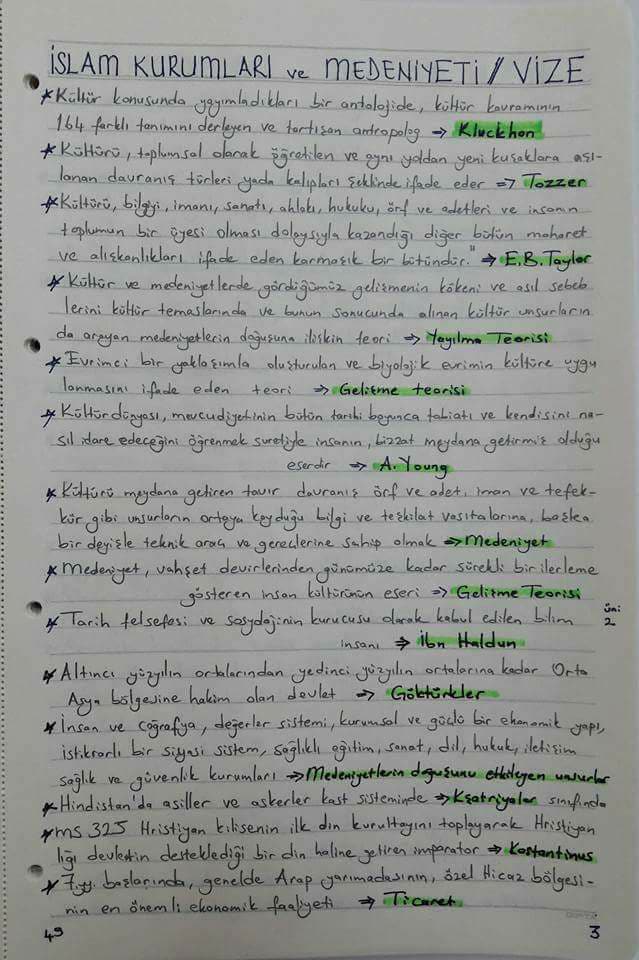 İSLAM KURUMLARI ve MEDENİYETİ / VİZE
* Kültür konusunda yayımladıkları bir antolojide, kültür kavramının
164 farklı tanımını derleyen ve tartışan antropolog ⇒ Kluckhon
* Kültürü, toplumsal olarak öğretilen ve aynı yoldan yeni kuşaklara aşı-
lanan davranış türleri yada kalıpları şeklinde ifade eder ⇒ Tozzer
* Kültürü, bilgiyi, imanı, sanatı, ahlakı, hukuku, örf ve adetleri ve insanın
toplumun bir üyesi olması dolayısıyla kazandığı diğer bütün maharet
ve alışkanlıkları ifade eden karmaşık bir bütündür." ⇒ E.B. Taylor
* Kültür ve medeniyetlerde gördüğümüz gelişmenin kökeni ve asıl sebeb
lerini kültür temaslarında ve bunun sonucunda alınan kültür unsurların
da arayan medeniyetlerin doğuşuna ilişkin teori ⇒ Yayılma Teorisi
* Evrimci bir yaklaşımla oluşturulan ve biyolojik evrimin kültüre uygu
lanmasını ifade eden teori ⇒ Gelişme teorisi
* Kültür dünyası, mevcudiyetinin bütün tarihi boyunca tabiatı ve kendisini na-
sıl idare edeceğini öğrenmek suretiyle insanın, bizzat meydana getirmiş olduğu
eserdir ⇒ A. Young
* Kültürü meydana getiren tavır davranış örf ve adet, iman ve tefek-
kür gibi unsurların ortaya koyduğu bilgi ve teşkilat vasıtalarına, başka
bir deyişle teknik araç ve gereçlerine sahip olmak ⇒ Medeniyet
* Medeniyet, vahşet devirlerinden günümüze kadar sürekli bir ilerleme
gösteren insan kültürünün eseri ⇒ Gelişme Teorisi
* Tarih felsefesi ve sosyolojinin kurucusu olarak kabul edilen bilim
insanı ⇒ İbn Haldun
üni
2
* Altıncı yüzyılın ortalarından yedinci yüzyılın ortalarına kadar Orta
Asya bölgesine hakim olan devlet ⇒ Göktürkler
* İnsan ve coğrafya, değerler sistemi, kurumsal ve güçlü bir ekonomik yapı,
istikrarlı bir siyasi sistem, sağlıklı eğitim, sanat, dil, hukuk, iletişim
sağlık ve güvenlik kurumları ⇒ Medeniyetlerin doğuşunu etkileyen unsurlar
* Hindistan'da asiller ve askerler kast sisteminde ⇒ Kşatriyalar sınıfında
* ms 325 Hristiyan kilisenin ilk din kurultayını toplayarak Hristiyan
lığı devletin desteklediği bir din haline getiren imparator ⇒ Kostantinus
* 7.yy. başlarında, genelde Arap yarımadasının, özel Hicaz bölgesi-
nin en önemli ekonomik faaliyeti ⇒ Ticaret
49
3